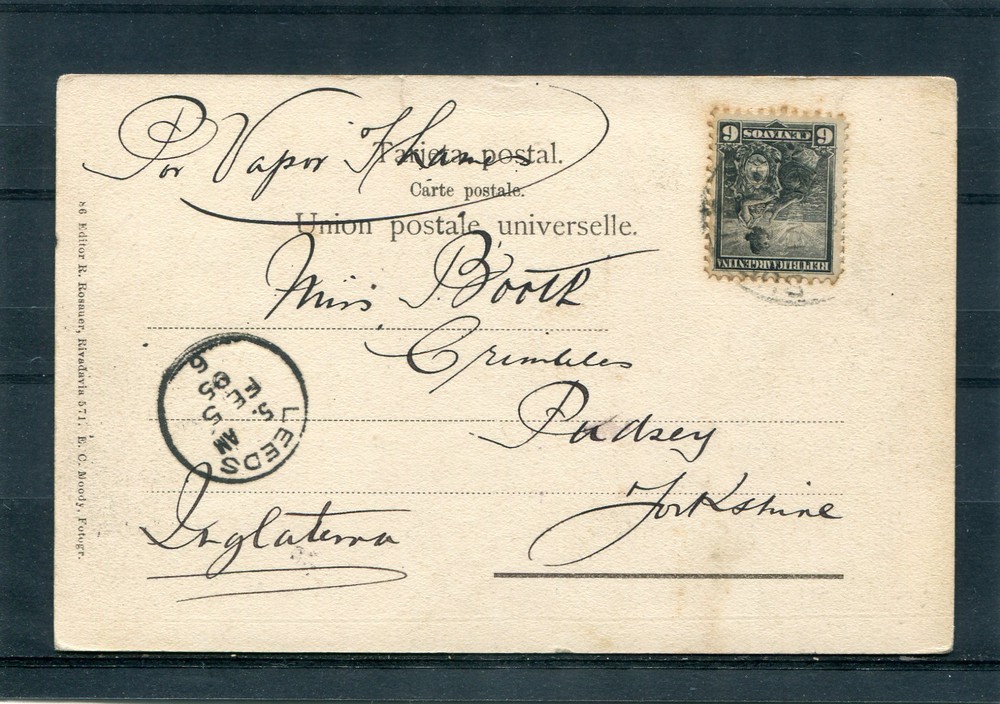 Por Vapor Thames
Tarjeta postal.
Carte postale.
Union postale universelle.
Miss Booth
Crimbles
Pudsey
Yorkshire
Inglaterra
6 CENTAVOS 6
REPUBLICA ARGENTINA
LEEDS
5 AM
FE 5
05
86 Editor R. Rosauer, Rivadavia 571. E. C. Moody, Fotogr.